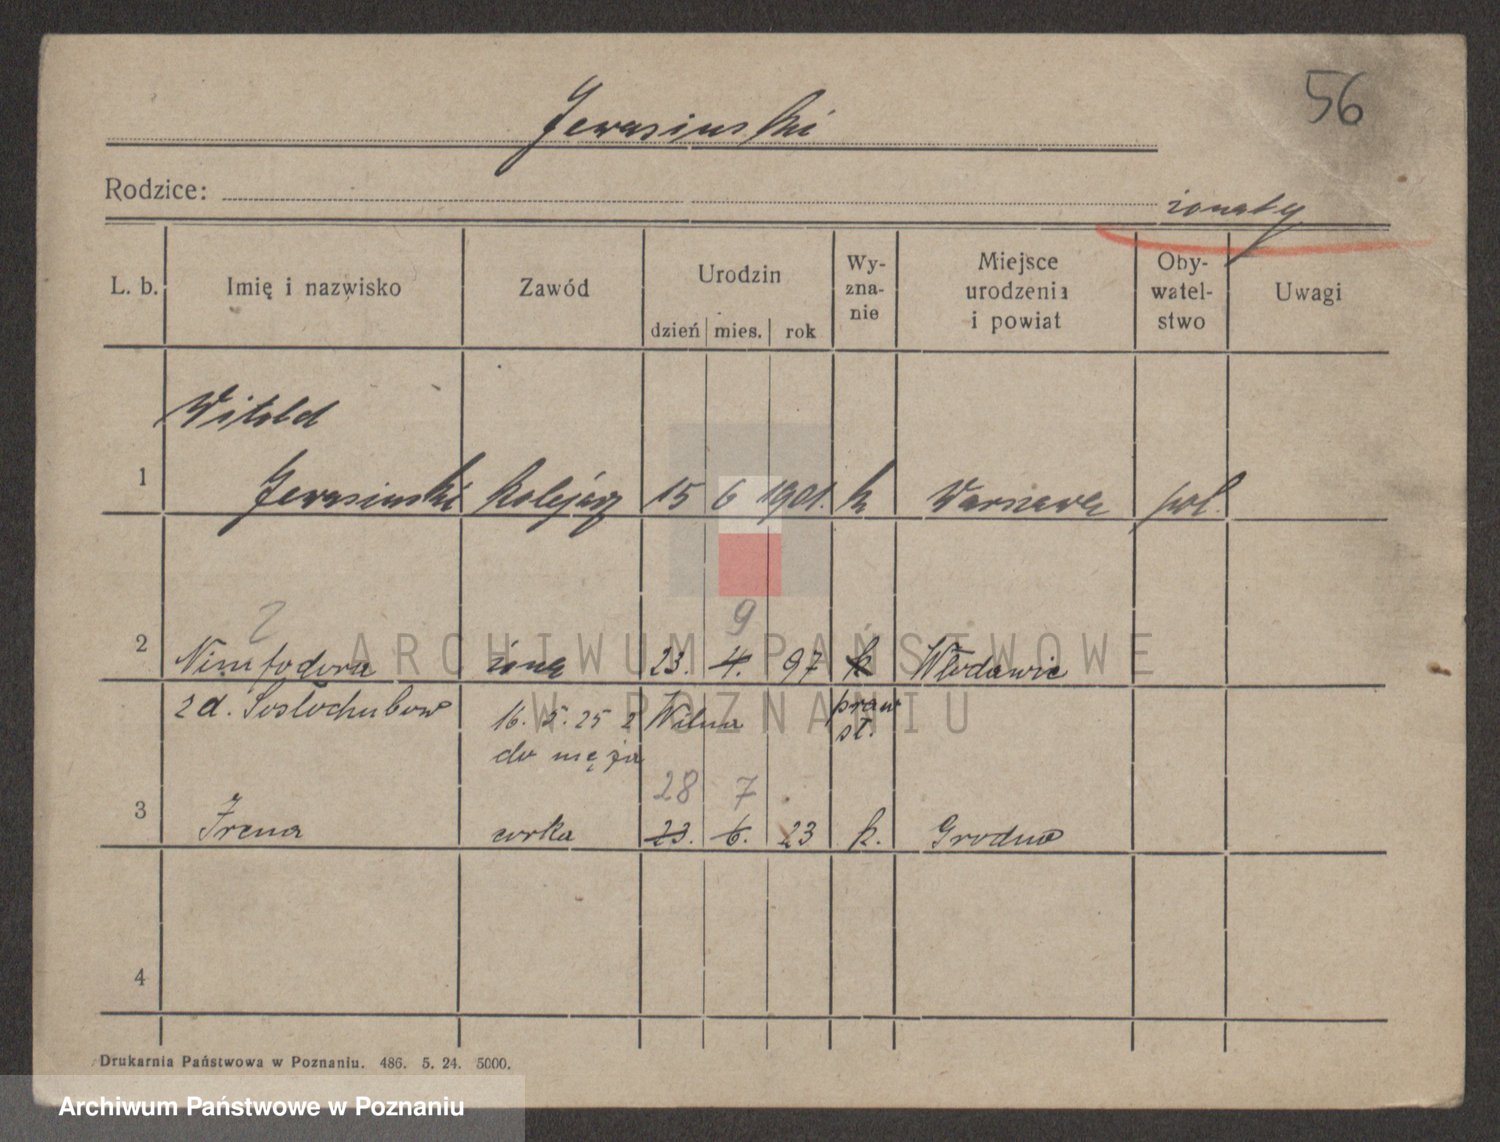 56
Jerasinski
Rodzice:
żonaty
L. b. Imię i nazwisko Zawód Urodzin Wy-zna-nie Miejsce urodzenia i powiat Oby-watel-stwo Uwagi
dzień mies. rok
Witold
1 Jerasinski kolejarz 15 6 1901. k Warszawa pol.
2 9
2 Nimfodora żona 23. 4. 97 k Włodawie
zd. Sosłochubow 16. 5. 25 z Wilna praw
do męża st.
28 7
3 Irena corka 23. 6. 23 k. Grodno
4
Drukarnia Państwowa w Poznaniu. 486. 5. 24. 5000.
ARCHIWUM PAŃSTWOWE
W POZNANIU
Archiwum Państwowe w Poznaniu